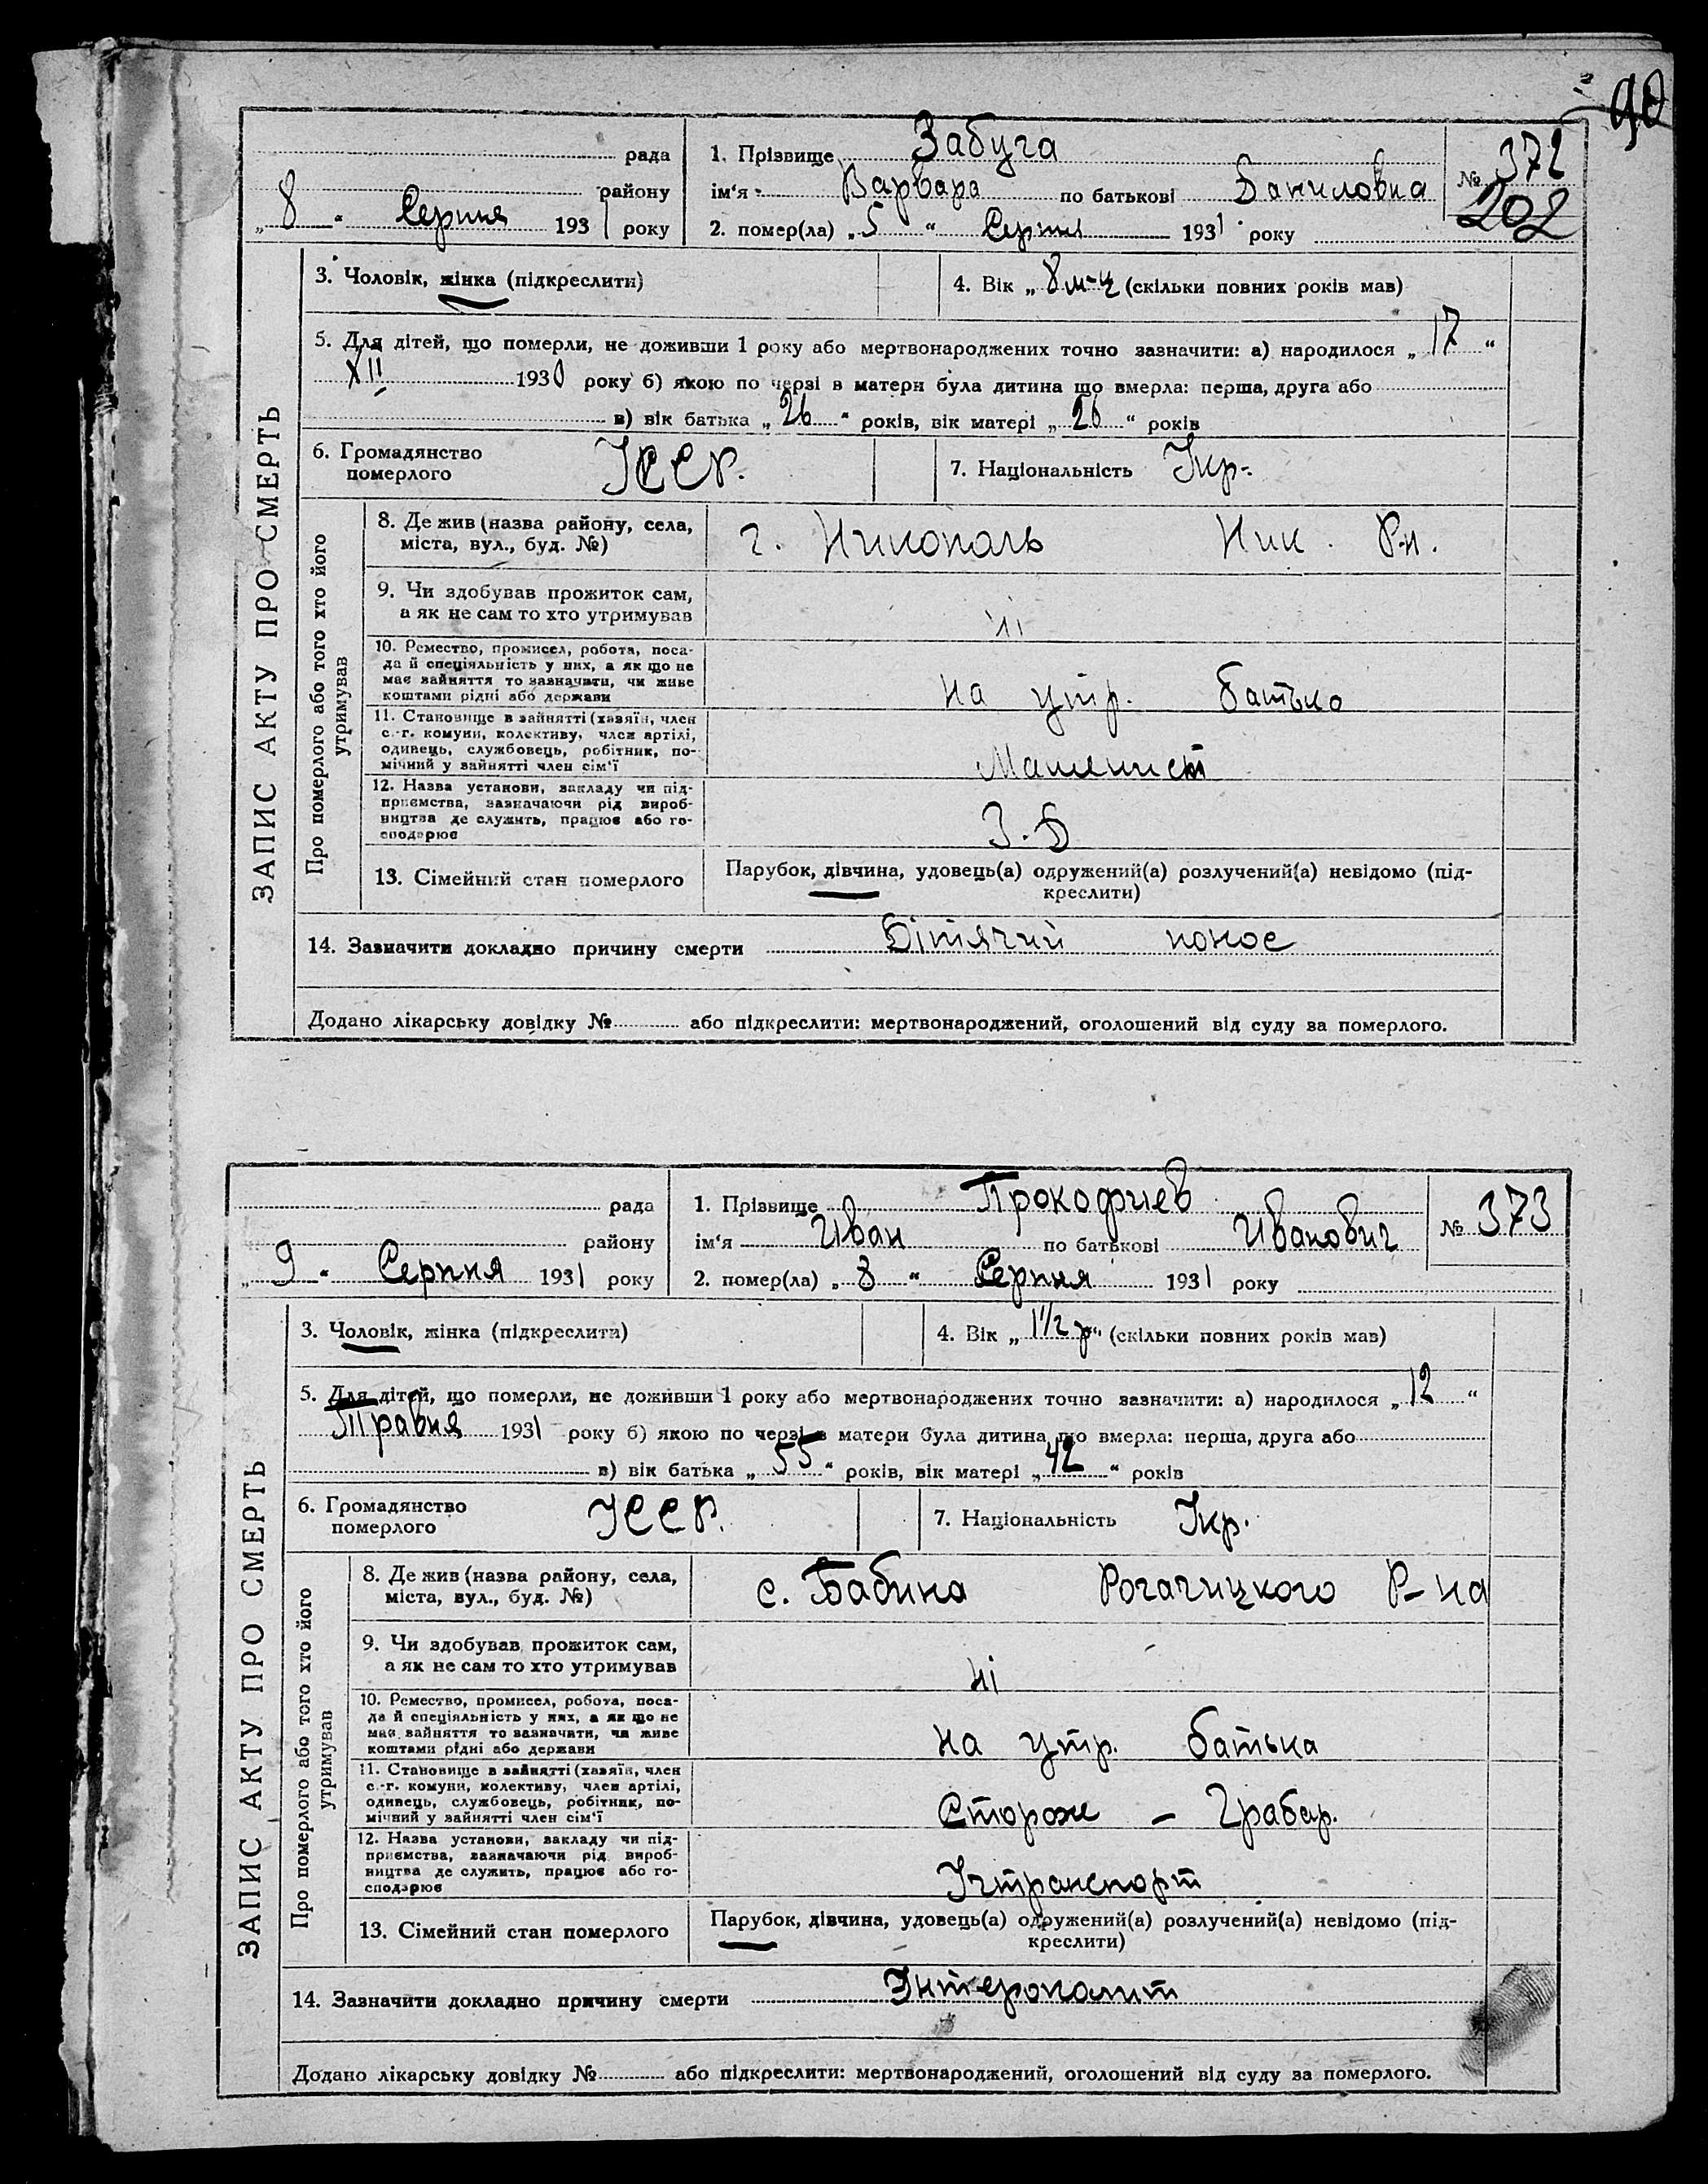 90
ЗАПИС АКТУ ПРО СМЕРТЬ
рада
району
„ 8 “ Серпня 1931 року
1. Прізвище Забуга
ім'я Варвара по батькові Даниловна
2. помер(ла) „ 5 “ Серпня 1931 року
№ 372
202
3. Чоловік, жінка (підкреслити)
4. Вік „ 8 м-ц (скільки повних років мав)
5. Для дітей, що померли, не доживши 1 року або мертвонароджених точно зазначити: а) народилося „ 17 “
XII 1930 року б) якою по черзі в матери була дитина що вмерла: перша, друга або
в) вік батька „ 26 “ років, вік матері „ 26 “ років
6. Громадянство померлого УССР.
7. Національність Укр.
Про померлого або того хто його утримував
8. Де жив (назва району, села, міста, вул., буд. №) г. Никополь Ник. Р-н.
9. Чи здобував прожиток сам, а як не сам то хто утримував ні
10. Ремество, промисел, робота, посада й спеціяльність у них, а як що не має зайняття то зазначити, чи живе коштами рідні або держави на утр. батька
11. Становище в зайнятті (хазяїн, член с.-г. комуни, колективу, член артілі, одинець, службовець, робітник, помічний у зайнятті член сім'ї Машинист
12. Назва установи, закладу чи підприємства, зазначаючи рід виробництва де служить, працює або господарює З.Д
13. Сімейний стан померлого Парубок, дівчина, удовець(а) одружений(а) розлучений(а) невідомо (підкреслити)
14. Зазначити докладно причину смерти Дітячий понос
Додано лікарську довідку № або підкреслити: мертвонароджений, оголошений від суду за померлого.
ЗАПИС АКТУ ПРО СМЕРТЬ
рада
району
„ 9 “ Серпня 1931 року
1. Прізвище Прокофиев
ім'я Иван по батькові Иванович
2. помер(ла) „ 8 “ Серпня 1931 року
№ 373
3. Чоловік, жінка (підкреслити)
4. Вік „ 1 1/2 р “ (скільки повних років мав)
5. Для дітей, що померли, не доживши 1 року або мертвонароджених точно зазначити: а) народилося „ 12 “
Травня 1931 року б) якою по черзі в матери була дитина що вмерла: перша, друга або
в) вік батька „ 55 “ років, вік матері „ 42 “ років
6. Громадянство померлого УССР.
7. Національність Укр.
Про померлого або того хто його утримував
8. Де жив (назва району, села, міста, вул., буд. №) с. Бабина Рогачицкого Р-на
9. Чи здобував прожиток сам, а як не сам то хто утримував ні
10. Ремество, промисел, робота, посада й спеціяльність у них, а як що не має зайняття то зазначити, чи живе коштами рідні або держави на утр. батька
11. Становище в зайнятті (хазяїн, член с.-г. комуни, колективу, член артілі, одинець, службовець, робітник, помічний у зайнятті член сім'ї Сторож – Грабар.
12. Назва установи, закладу чи підприємства, зазначаючи рід виробництва де служить, працює або господарює
13. Сімейний стан померлого Парубок, дівчина, удовець(а) одружений(а) розлучений(а) невідомо (підкреслити)
14. Зазначити докладно причину смерти
Додано лікарську довідку № або підкреслити: мертвонароджений, оголошений від суду за померлого.